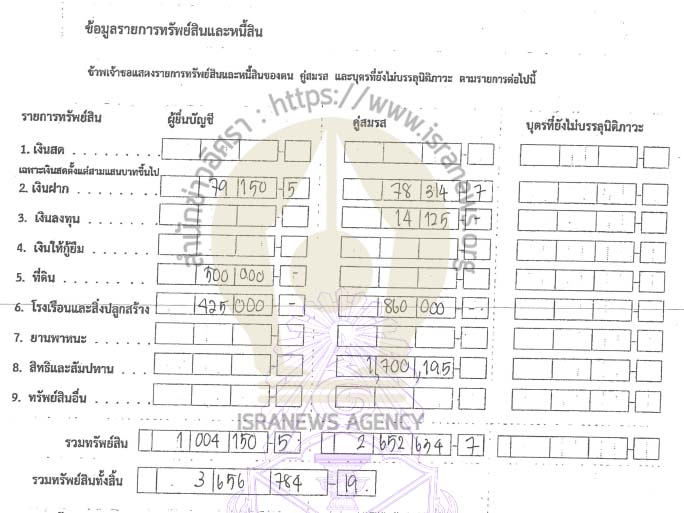 ข้อมูลรายการทรัพย์สินและหนี้สิน
ข้าพเจ้าขอแสดงรายการทรัพย์สินและหนี้สินของตน คู่สมรส และบุตรที่ยังไม่บรรลุนิติภาวะ ตามรายการต่อไปนี้
รายการทรัพย์สิน ผู้ยื่นบัญชี คู่สมรส บุตรที่ยังไม่บรรลุนิติภาวะ
1. เงินสด
เฉพาะเงินสดตั้งแต่สามแสนบาทขึ้นไป
2. เงินฝาก 79 150 - 5 78 314 - 7
3. เงินลงทุน 14 125 - -
4. เงินให้กู้ยืม
5. ที่ดิน 500 000 - -
6. โรงเรือนและสิ่งปลูกสร้าง 425 000 - - 860 000 - -
7. ยานพาหนะ
8. สิทธิและสัมปทาน 1,700,195 -
9. ทรัพย์สินอื่น
รวมทรัพย์สิน 1 004 150 - 5 2 652 634 - 7
รวมทรัพย์สินทั้งสิ้น 3 656 784 - 19
สำนักข่าวอิศรา : https://www.isranews.org
ISRANEWS AGENCY